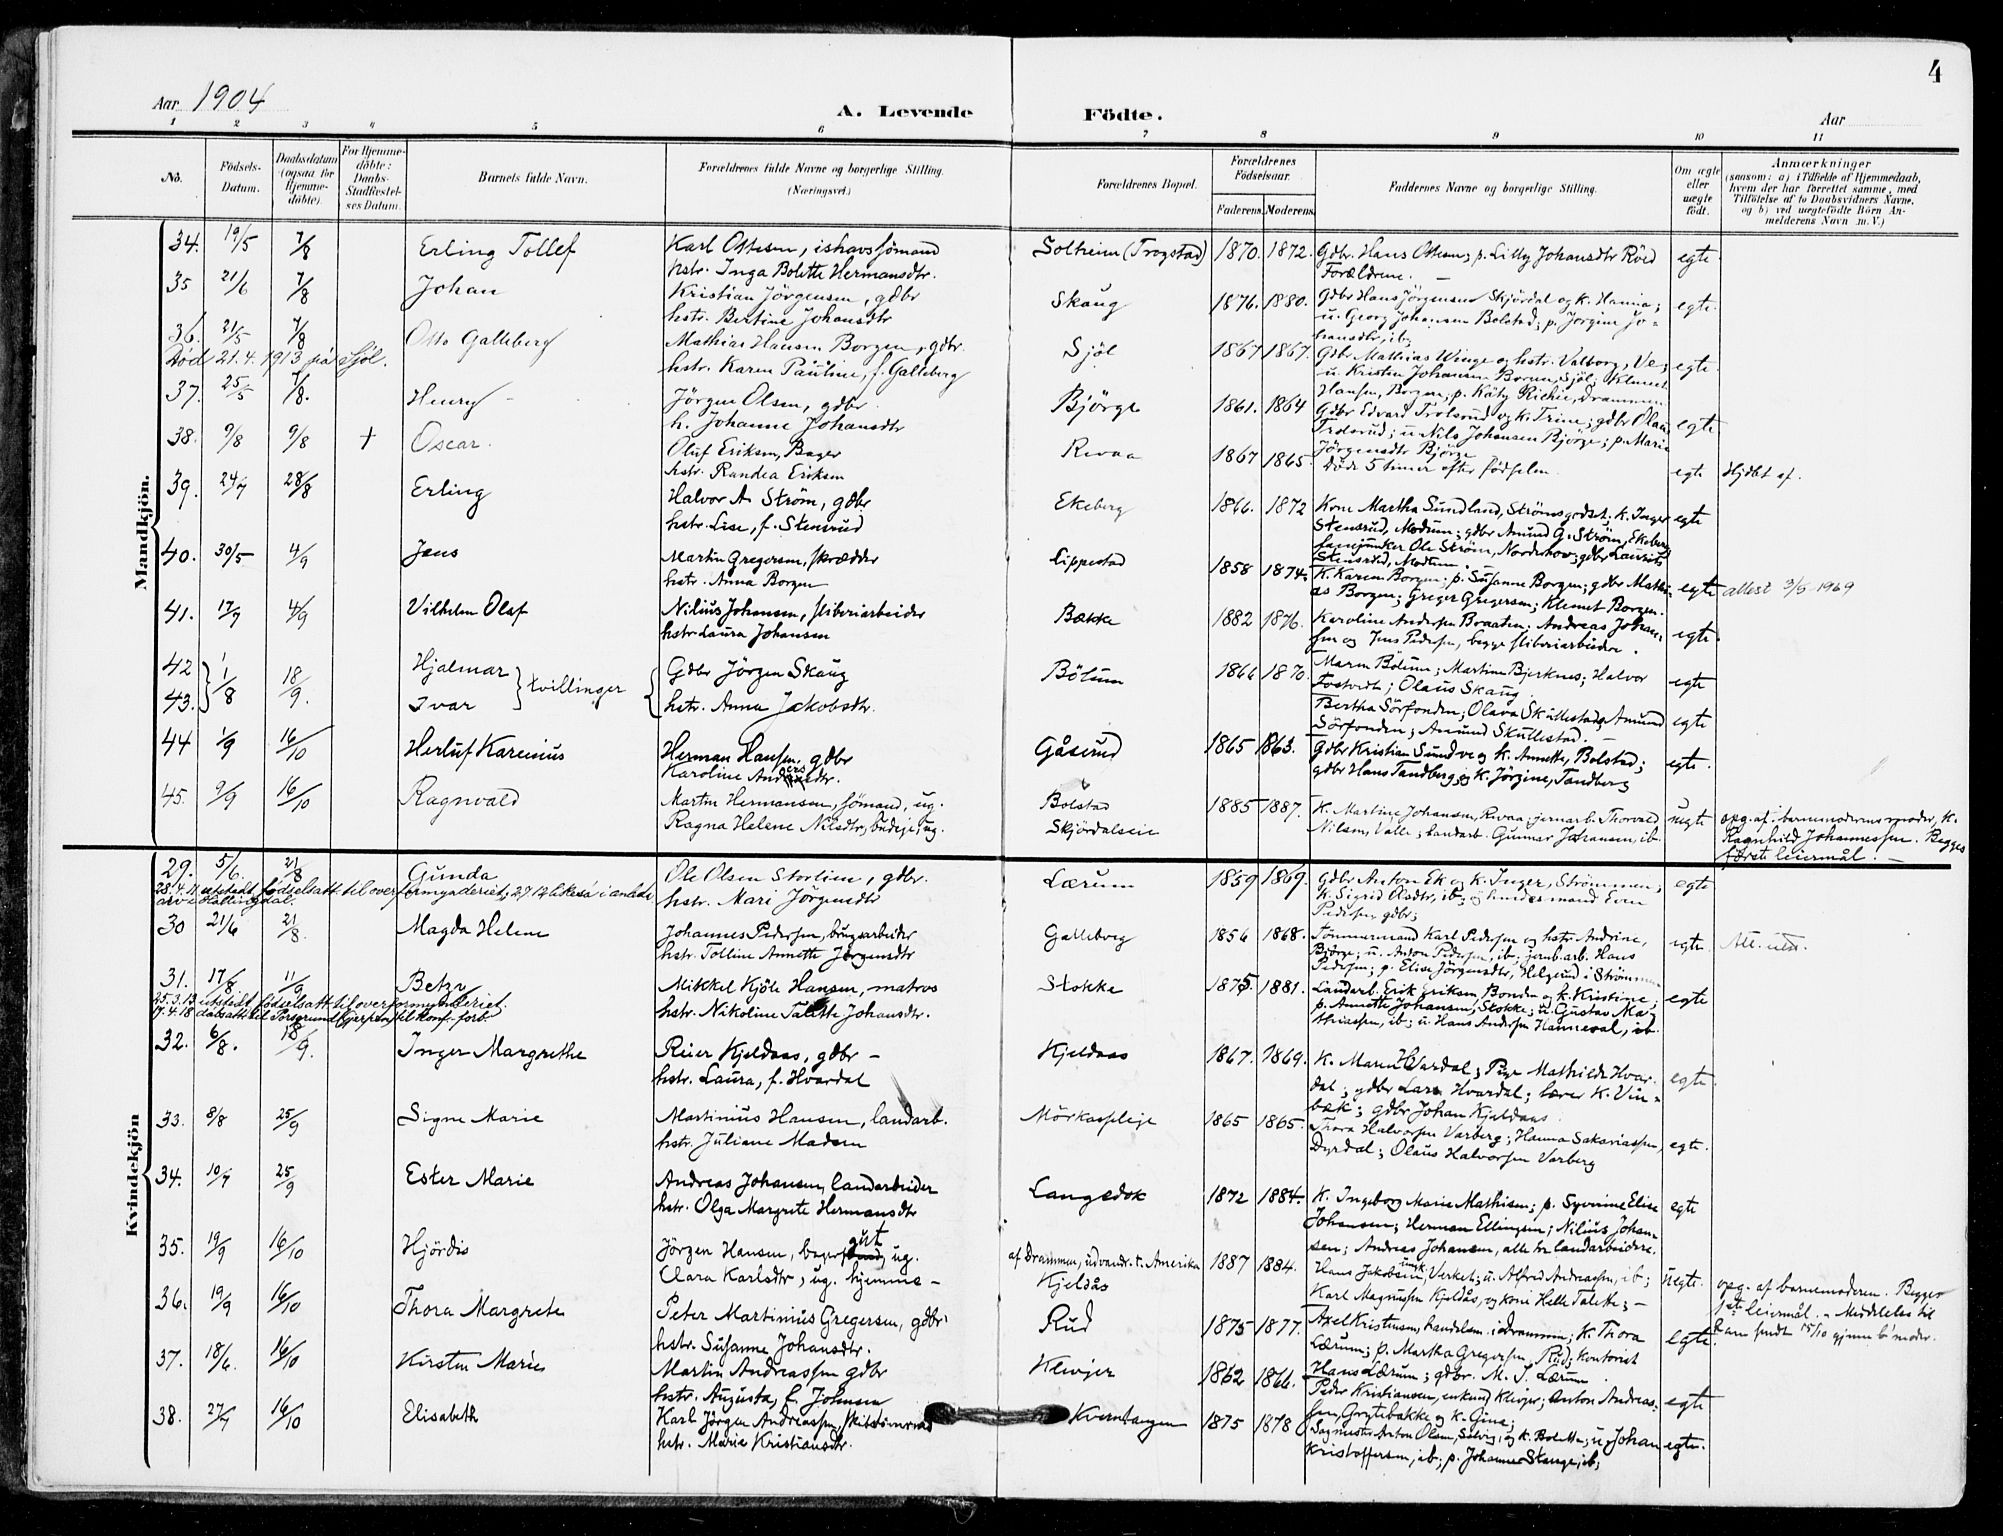 4
Aar 1904
A. Levende Födte.
Aar
1 2 3 4 5 6 7 8 9 10 11
No.
Födsels-Datum.
Daabsdatum (ogsaa for Hjemme-döbte).
For Hjemme-döbte: Daabs-Stadfæstel-ses Datum.
Barnets fulde Navn.
Forældrenes fulde Navne og borgerlige Stilling. (Næringsvei.)
Forældrenes Bopæl.
Forældrenes Födselsaar.
Faderens. Moderens.
Faddernes Navne og borgerlige Stilling.
Om ægte eller uægte födt.
Anmærkninger
(saasom: a) i Tilfælde af Hjemmedaab, hvem der har forrettet samme, med Tilföielse af to Daabsvidners Navne, og b) ved uægtefödte Börn Anmelderens Navn m. V.)
Mandkjön.
34. 19/5 7/8 Erling Tollef Karl Ottesen, ishavssömand Solheim (Trogstad) 1870. 1872. Gdbr. Hans Ottesen; p. Lilly Johansdtr Röed egte
hstr. Inga Bolette Hermansdtr. Forældrene. —
35 21/6 7/8 Johan Kristian Jörgensen, gdbr Skaug 1876. 1880. Gdbr Hans Jörgensen Skjördal og k. Hanna; egte.
hstr. Bertine Johansdtr u. Georg Johansen Bolstad; p. Jorgine Jo-
hansdtr, ib.
36. 21/5 7/8 Otto Galleberg Mathias Hansen Borgen, gdbr. Sjöl 1867 1867. Gdbr Mathias Winge og hstr. Valborg, Ve; egte.
Död 21.4.1913 på Sjöl. hstr. Karen Pauline, f. Galleberg u. Kristen Johansen Borgen, Sjöl; Klemet
Hansen, Borgen; p. Käty Richie, Drammen.
37. 25/5 7/8. Henry Jörgen Olsen, gdbr. Björge 1861. 1864 Gdbr Edvard Trolsrud og k. Trine; gdbr Olaus egte
h. Johanne Johansdtr Trolsrud; u Nils Johansen Björge; p. Marie
Jörgensdtr Björge
38. 9/8 9/8 + Oscar. Oluf Eriksen, Bager Revaa 1867 1865. Döde 5 timer efter födselen. egte Hjdöbt af.
hstr. Randea Eriksen
39. 24/7 28/8 Erling Halvor A. Ström, gdbr Ekeberg 1866. 1872 Kone Martha Sundland, Strömsgodset. k. Inger egte
hstr. Lise, f. Stensrud Stensrud, Modum; gdbr Amund G. Ström, Ekeberg
Ole Ström, Norderhov; gdbr Laurits
Stensrud, Modum.
40. 30/5 4/9 Jens Martin Gregersen, skrædder Lippestad 1858 1874. K. Karen Borgen; p. Susanne Borgen; gdbr Mathi- egte attest 3/5-1969
hstr. Anna Borgen as Borgen; Greger Gregersen; Klemet Borgen.
41. 17/7 4/9 Vilhelm Olaf Nilius Johansen, sliberiarbeider Bække 1882 1876. Karoline Andersen Braaten; Andreas Johan- egte
hstr Laura Johansen sen og Jens Pedersen, begge sliberiarbeidere.
42 } 1/8 18/9. Hjalmar } tvillinger { Gdbr Jörgen Skaug Bölum 1866 1870. Maren Bölum; Martine Bjerknes; Halvor egte
Fostvedt; Olaus Skaug.
43. Ivar hstr. Anna Jakobsdtr. Bertha Sörfonden; Olava Skullestad; Amund egte
Sörfonden; Amund Skullestad. —
44 1/9 16/10 Herluf Karenius Herman Hansen, gdbr Gåserud 1865 1863. Gdbr Kristian Sundve og k. Annette, Bolstad; egte.
Karoline Andersdtr. gdbr Hans Tandberg og k. Jörgine, Tandberg
45. 9/9 16/10 Ragnvald Martin Hermansen, sömand, ug. Bolstad 1885 1887. K. Martine Johansen, Revaa; jernarb. Thorvald uegte opg. af barnemoderens moder, K.
Ragna Helene Nilsdtr, budeje, ug. Skjördalseie Nilsen, Valle; landarb. Gunnar Johansen, ib. Ragnhild Johannessen. Begges
første leiermål. —
Kvindekjön
29. 5/6. 21/8 Gunda Ole Olsen Stortien, gdbr. Lærum 1859 1869. Gdbr Anton Ek og k. Inger, Strömmen; egte
28.4.11 utstedt födselsatt til overformynderiet; 27.12 likeså i anledn. hstr. Mari Jörgensdtr K. Sigrid Olsdtr, ib; og husmand Even
arv i Hallingdal. Pedersen, gdbr;
30 21/6 21/8. Magda Helene Johannes Pedersen, brugsarbeider Galleberg 1856 1868. Tömmermand Karl Pedersen og hstr Andrine, egte. Att. utst.
hstr. Tolline Annette Jörgensdtr Björge; u. Anton Pedersen, ib; jernb.arb. Hans
Pedersen; p. Elise Jörgensdtr, Helgerud i Strömmen
31. 17/8 11/9 Betzy Mikkel Kjöle Hansen, matros Stokke 1875. 1881. Landarb. Erik Eriksen, Bonden og k. Kristine; egte
25.3.13 utstedt födselsatt til overformynderiet. hstr. Nikoline Talette Johansdtr. p. Annette Johansen, Stokke; u. Gustav Ma-
17.4.18 dåbsatt til Porsgrund (Gjerpen) til konf. forb. thiassen, ib; u. Hans Andersen Hanneval, ib.
32. 6/8. 18/9. Inger Margrethe Reier Kjeldaas, gdbr — Kjeldaas 1867. 1869. K. Maren Hvardal; Pige Mathilde Hvar- egte.
hstr. Laura, f. Hvardal dal; gdbr Lars Hvardal; lærer K. Vin-
bæk; gdbr Johan Kjeldaas.
33. 8/8 25/9 Signe Marie Martinius Hansen, landarb. Mörkasseleje 1865 1865. Thora Halvorsen Varberg; Hanna Sakariassen, egte.
hstr. Juliane Madsen Dyrdal; Olaus Halvorsen Varberg
34. 10/7 25/9 Ester Marie Andreas Johansen, landarbeider Langedok 1872 1884. K. Ingeborg Marie Mathisen; p. Syverine Elise egte
hstr. Olga Margrete Hermansdtr Johansen; Herman Ellingsen; Nilius Johan-
sen; Andreas Johansen, alle tre landarbeidere.
35. 19/9 16/10 Hjördis Jörgen Hansen, bagergut, ug. af Drammen, udvandr. t. Amerika 1887 1884. Hans Jakobsen, Verket; u. Alfred Andreassen, ib; uegte. opg. af barnemoderen. Begges
Clara Karlsdtr, ug. hjemme — Kjeldås Karl Magnussen Kjeldås, og kone Helle Talette; — 1ste leiermål. — Meddelelse til
36. 19/9 16/10 Thora Margrete Peter Martinius Gregersen, gdbr. Rud 1875 1877. Axel Kristensen, handelsm. i Drammen; k. Thora egte. sendt 15/10 gjenn b' moder.
hstr. Susanne Johansdtr. Lærum; p. Martha Gregersen, Rud; kontorist
Hans Lærum; gdbr. M. J. Lærum.
37. 18/6. 16/10 Kirsten Marie Martin Andreassen gdbr Klevjer 1862 1866. Peder Kristiansen, enkemd Klevjer; Anton Andreas- egte
hstr. Augusta, f. Johnsen sen, Grytebakke og k. Gina;
38. 27/7 16/10 Elisabeth Karl Jörgen Andreassen, Kverntangen 1875 1878 Sagmester Anton Olsen, Solvig, og k. Bolette; u. Johan egte.
hstr. Marie Kristiansdtr. Kristoffersen, ib; p. Johanne Stange, ib;